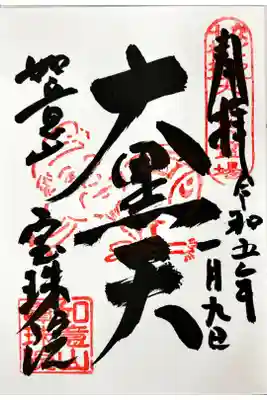 奉拝
令和五年
一月九日
大黒天
如意山
宝珠院